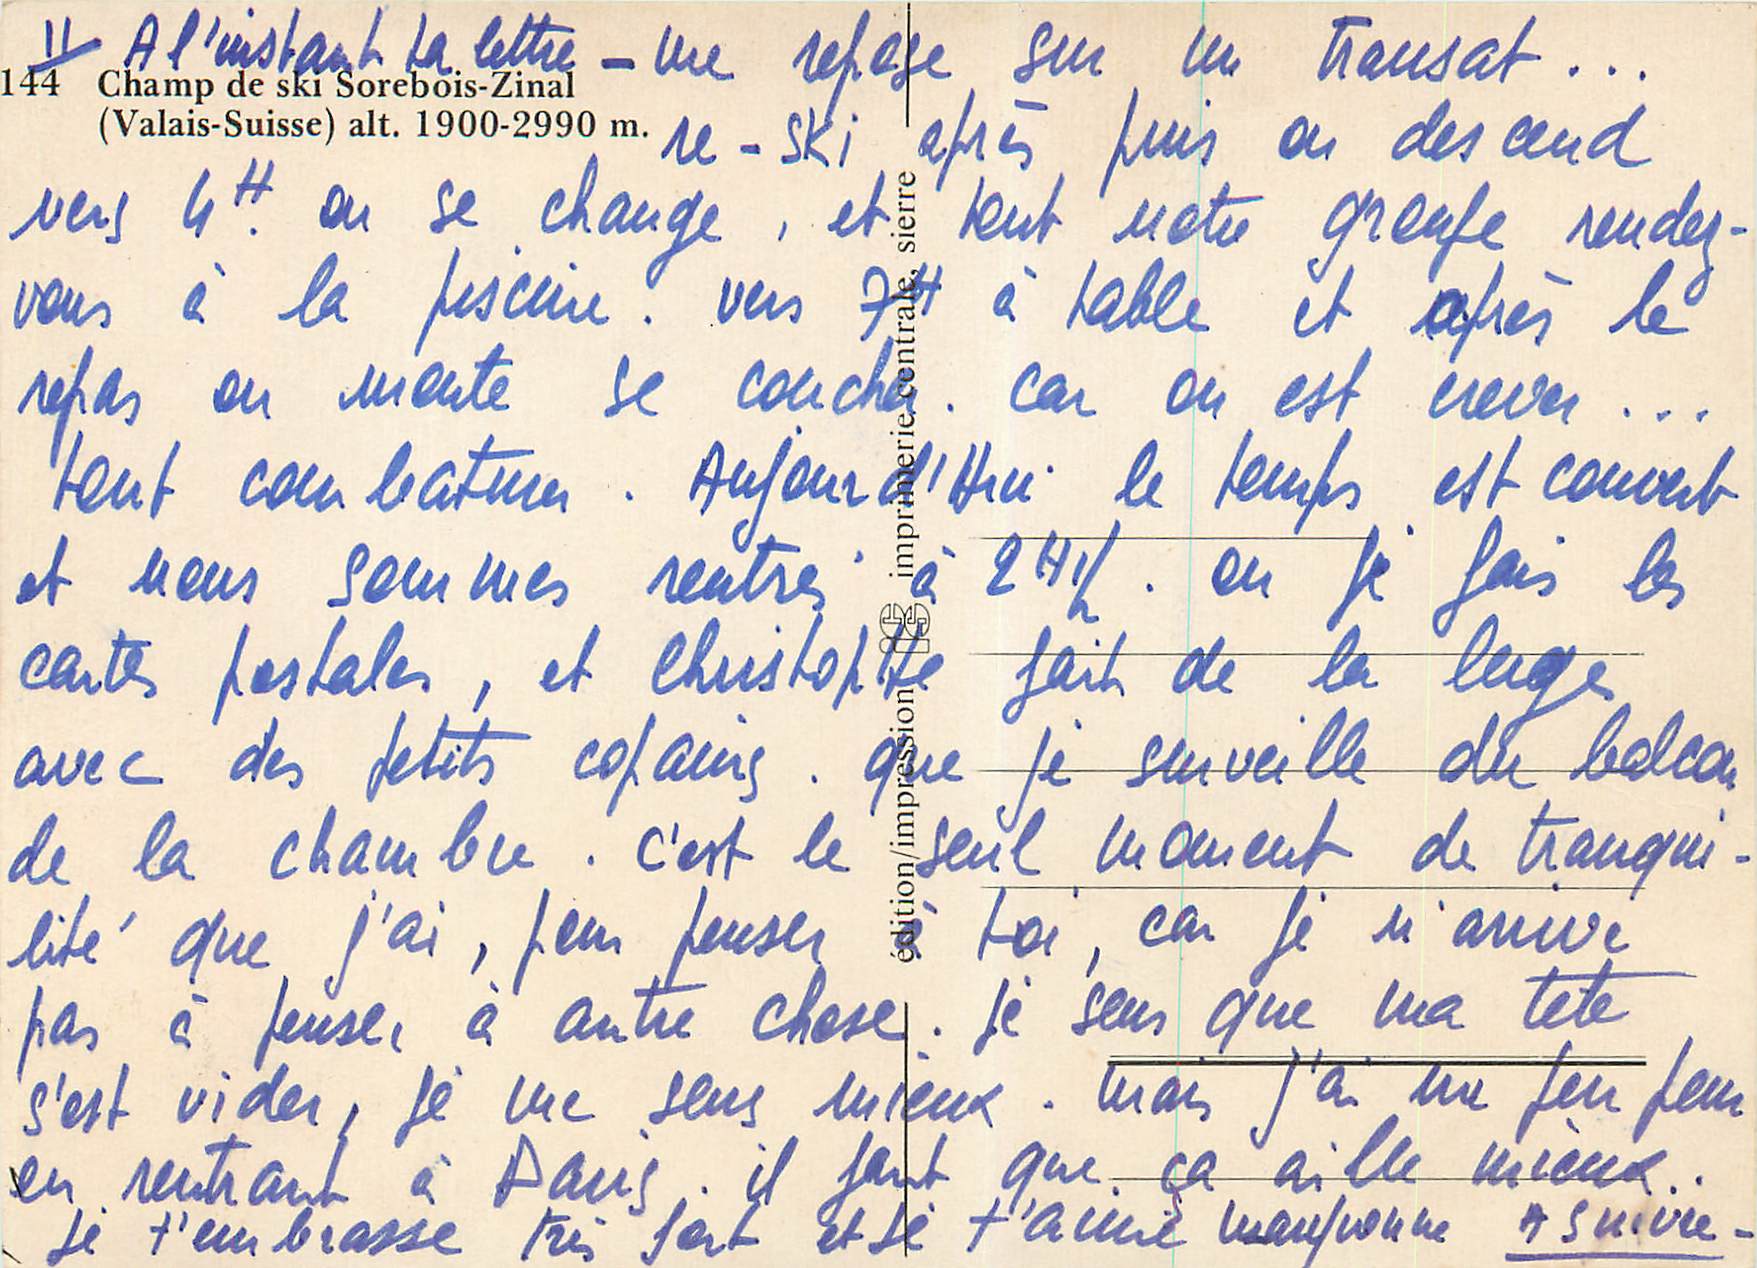 II A l'instant ta lettre - me repose sur un transat...
144 Champ de ski Sorebois-Zinal
(Valais-Suisse) alt. 1900-2990 m.
re-ski après puis on descend
vers 4H. on se change, et tout notre groupe rendez-
vous à la piscine. vers 7H à table et après le
repas on monte se coucher. car on est crever...
tout courbatures. Aujourd'Hui le temps est couvert
et nous sommes rentrés à 2H1/2. on je fais les
cartes postales, et Christophe fait de la luge
avec des petits copains. que je surveille du balcon
de la chambre. c'est le seul moment de tranqui-
lité que j'ai, pour penser à toi, car je n'arrive
pas à penser à autre chose. je sens que ma tete
s'est vider, je me sens mieux. mais j'ai un peu peur
en rentrant à Paris. il faut que ça aille mieux..
je t'embrasse très fort et je t'aime A suivre -
édition/impression imprimerie centrale, sierre